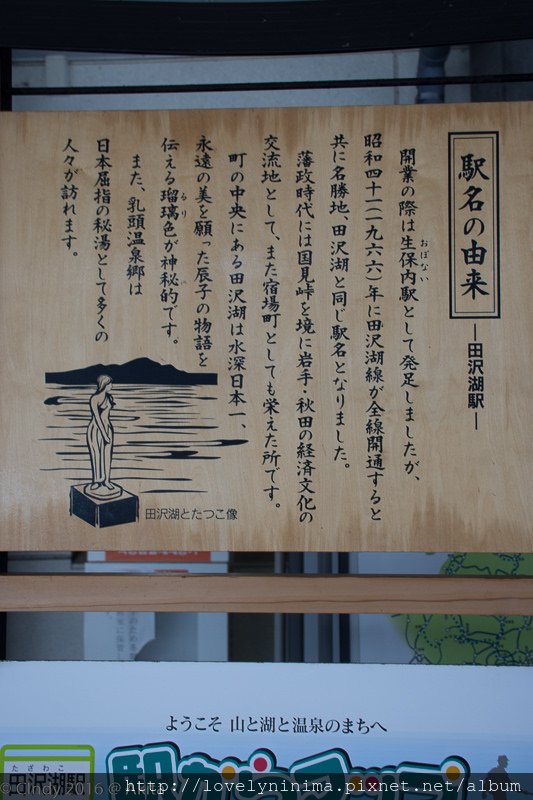 駅名の由来
―田沢湖駅―
開業の際は生保内駅として発足しましたが、
おぼない
昭和四十一(一九六六)年に田沢湖線が全線開通すると
共に名勝地、田沢湖と同じ駅名となりました。
藩政時代には国見峠を境に岩手・秋田の経済文化の
交流地として、また宿場町としても栄えた所です。
町の中央にある田沢湖は水深日本一、
永遠の美を願った辰子の物語を
伝える瑠璃色が神秘的です。
るり
また、乳頭温泉郷は
日本屈指の秘湯として多くの
人々が訪れます。
田沢湖とたつこ像
ようこそ 山と湖と温泉のまちへ
たざわこ
田沢湖駅
駅からマップ
http://lovelyninima.pixnet.net/album